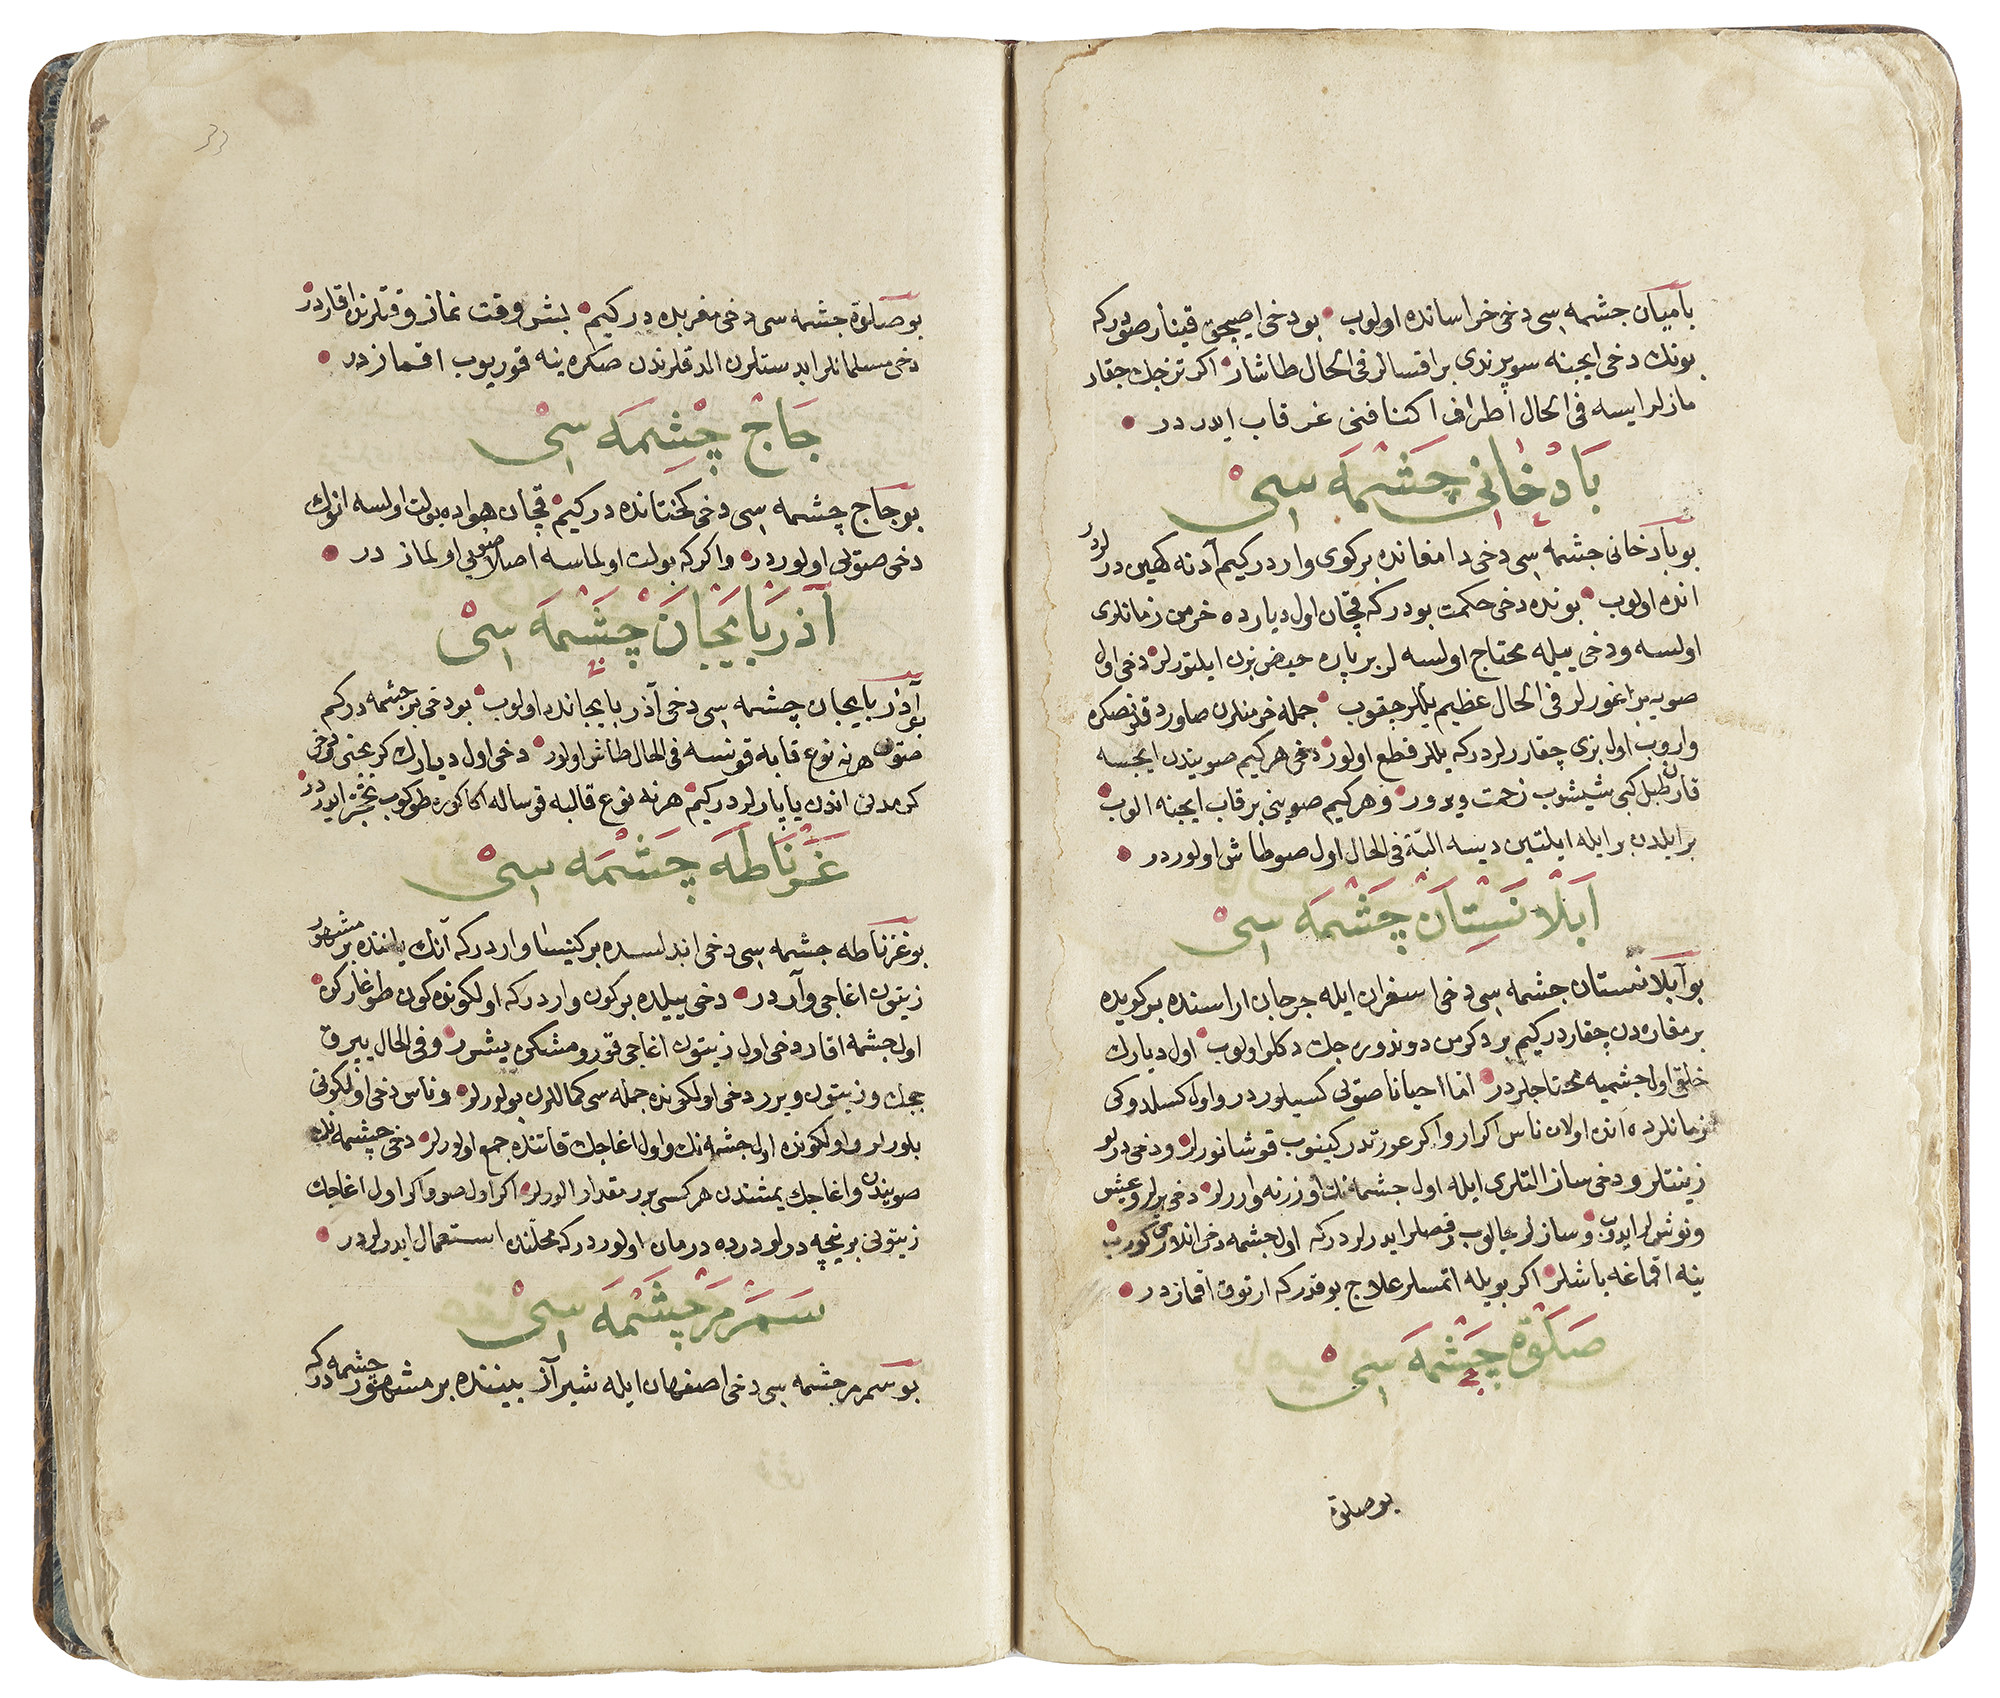 باميان چشمه سی دخی خراسانده اولوب بو دخی ايصيجق قينار صودر كه
بونك دخی ايچنه سوپرندی براقسالر فی الحال طاشار اكر تزجك چقار
مازلر ايسه فی الحال اطراف اكنافنی غرقاب ايدر در
بَادْخانی چَشْمَه سیْ
بو بادخانی چشمه سی دخی دامغانده بر كوی واردر كيم آدنه كهين درلر
انده اولوب بونده دخی حكمت بودر كه قچان اول ديارده خرمن زمانلری
اولسه و دخی ييله محتاج اولسه لر بر پاره حيض بزن ايلتورلر دخی اول
صويه براغورلر فی الحال عظيم يللر چقوب جمله خرمنلرن صاوردقلرنصكره
واروب اول بزی چقاررلردر كه يللر قطع اولور دخی هركيم صويندن ايچسه
قارن طبل كبی شيشوب زحمت ويرور و هركيم صوينی بر قاب ايچنه الوب
بر ايلدن بر ايله ايلتين ديسه البتّه فی الحال اول صو طاش اولوردر
اَبْلانَسِتْاَنْ چَشْمَه سیْ
بو آبلانستان چشمه سی دخی اسفران ايله جرجان اراسنده بر كويده
بر مغاره دن چقاردر كيم بر دكرمن دوندوره جك دكلو اولوب اول ديارك
خلقی اول چشميه محتاجلردر امّا احيانا صولی كسيلوردر و اول كسلدوكی
زمانلرده انده اولان ناس اكر ار و اكر عورتدر كينوب قوشانورلر و دخی درلو
زينتلر و دخی ساز التلری ايله اول چشمه نك اوزرنه واررلر دخی يرلر و عيش
و نوش لر ايدوب و سازلر چالوب رقصلر ايدرلردر كه اول چشمه دخی انلاری كورب
ينه اقماغه باشلر اكر بويله اتمسلر علاج يوقدر كه ارتوق اقمازدر
صَلٰوة چَشْمَه سیْ
بو صلوة
بو صلوة چشمه سی دخی مغربده در كيم بش وقت نماز وقتلرنده اقاردر
دخی مسلمانلر ابدستلرن الدقلرندن صكره ينه قوريوب اقمازدر
جَاجْ چِشْمَه سیْ
بو جاج چشمه سی دخی كختانده در كيم قچان هواده بولت اولسه انوك
دخی صولی اولوردر و اكر كه بولت اولماسه اصلا صويی اولمازدر
آذَربَايجَانْ چَشْمَه سیْ
بو آذربايجان چشمه سی دخی آذربايجانده اولوب بو دخی بر چشمه در كم
صولن هر نه نوع قابه قونسه فی الحال طاش اولور دخی اول ديارك كربچنی
كرمدنی اندن ياپارلردر كيم هر نه نوع قالبه قوسالر اكا كوره طوكوب ايدردر
غَرْنَاطَه چَشْمَه سیْ
بو غرناطه چشمه سی دخی اندلسده بر كنيسا واردر كه آنك يانده بر مشهور
زيتون اغاجی واردر دخی ييلده بر كون واردر كه اولكونده كون طوغار كن
اول چشمه اقار دخی اول زيتون اغاجی قورومشكن يشرر و فی الحال يپرق
چچك و زيتون ويرر دخی اولكونده جمله سی كماللرن بولورلر و ناس دخی اولكونی
بلورلر و اولكونده اول چشمه نك و اول اغاجك قاتنده جمع اولورلر دخی چشمه نك
صويندن و اغاجك يمشندن هر كسی برر مقدار الورلر اكر اول صو و اكر اول اغاجك
زيتونی بر نيچه درلو درده درمان اولوردر كه محلنده استعمال ايدرلردر
سَمَرمَرْ چَشْمَه سیْ
بو سمرمر چشمه سی دخی اصفهان ايله شيراز بيننده بر مشهور چشمه در كه